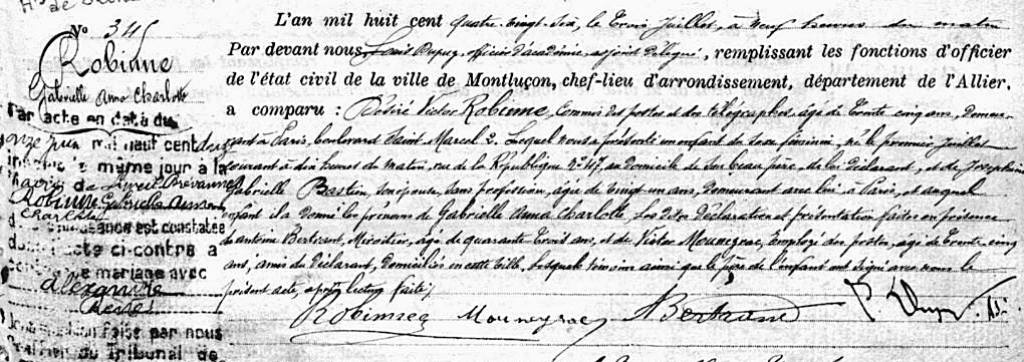 No 345
Robinne
Gabrielle Anna Charlotte
Par acte en date du
onze juin mil neuf cent
même jour à la
Robinne Gabrielle Anna
Charlotte
est constatée
acte ci-contre a
mariage avec
Alexandre
faite par nous
du Tribunal de
L'an mil huit cent quatre-vingt-six, le trois juillet, à neuf heures du matin
Par devant nous, Louis Dupuy, officier d'académie, adjoint délégué, remplissant les fonctions d'officier
de l'état civil de la ville de Montluçon, chef-lieu d'arrondissement, département de l'Allier,
a comparu : Désiré Victor Robinne, Commis des postes et des télégraphes, âgé de trente cinq ans, demeu-
rant à Paris, boulevard Saint Marcel 2. Lequel nous a présenté un enfant du sexe féminin, né le premier juillet
courant à dix heures du matin, rue de la République no 47, au domicile de son beau père, de lui déclarant, et de Joséphine
Gabrielle Bastien, son épouse, sans profession, âgée de vingt un ans, demeurant avec lui à Paris, et auquel
enfant il a donné les prénoms de Gabrielle Anna Charlotte, Les dites déclaration et présentation faites en présence
de Antoine Bertrant, Miroitier, âgé de quarante trois ans, et de Victor Mouneyrac, Employé des postes, âgé de trente cinq
ans, amis du déclarant, domiciliés en cette ville, lesquels témoins ainsi que le père de l'enfant ont signé avec nous le
présent acte, après lecture faite,
Robinne Mouneyrac A Bertrand